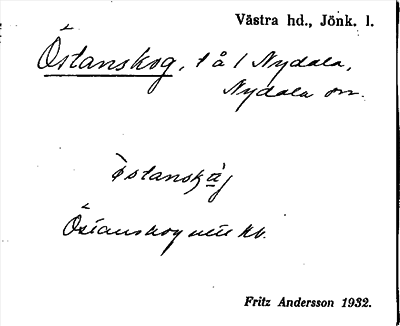 Västra hd., Jönk. l.
Östanskog, t å l Nydala,
Nydala sn.
Östanskog
Fritz Andersson 1932.